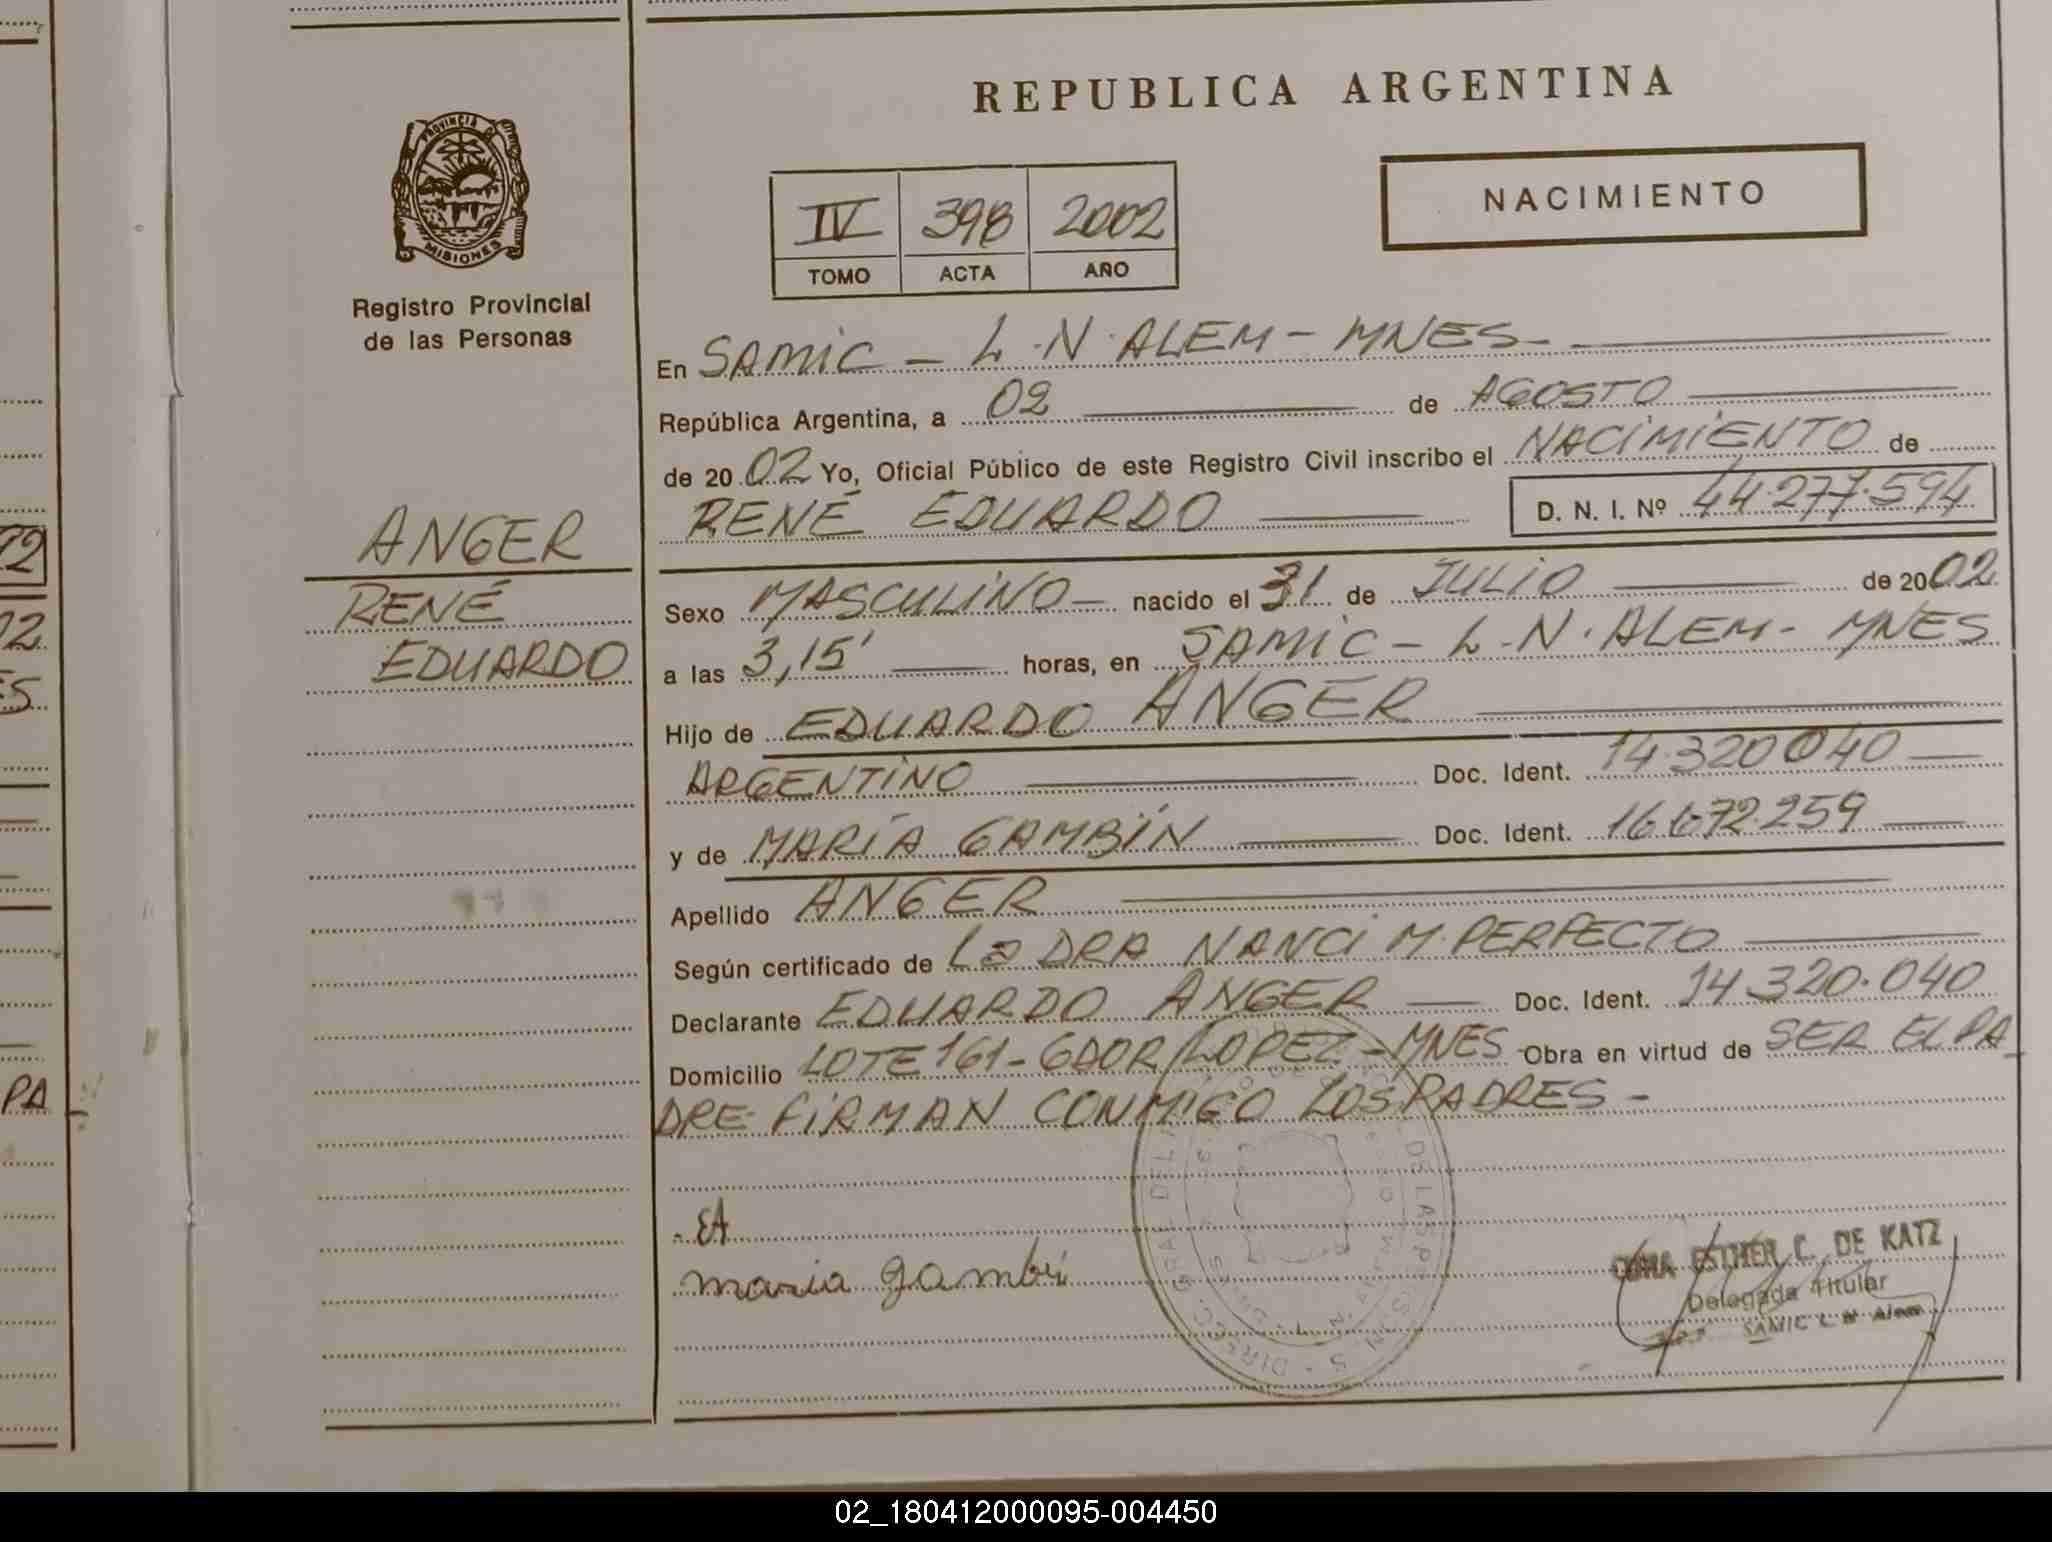 REPUBLICA ARGENTINA
PROVINCIA DE
MISIONES
Registro Provincial
de las Personas
NACIMIENTO
IV 398 2002
TOMO ACTA AÑO
En SAMIC - L.N. ALEM - MNES
República Argentina, a 02 de AGOSTO
de 2002 Yo, Oficial Público de este Registro Civil inscribo el NACIMIENTO de
RENÉ EDUARDO D. N. I. Nº 44.277.594
ANGER
RENÉ
EDUARDO
Sexo MASCULINO nacido el 31 de JULIO de 2002
a las 3,15' horas, en SAMIC - L.N. ALEM - MNES
Hijo de EDUARDO ANGER
ARGENTINO Doc. Ident. 14.320.040
y de MARÍA GAMBÍN Doc. Ident. 16.672.259
Apellido ANGER
Según certificado de La DRA NANCI M. PERFECTO
Declarante EDUARDO ANGER Doc. Ident. 14.320.040
Domicilio LOTE 161 - GDOR LOPEZ - MNES Obra en virtud de SER EL PA
DRE - FIRMAN CONMIGO LOS PADRES -
EA
maria gambi
ESTHER C. DE KATZ
Delegada Titular
SAMIC L. N. Alem
02_180412000095-004450